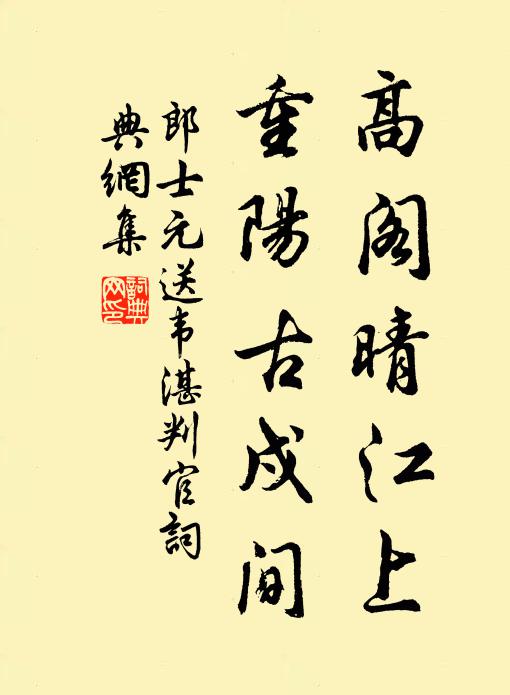 高閣晴江上
重陽古戍間
郎士元送韦湛判官詞
典網集
詞典
网印